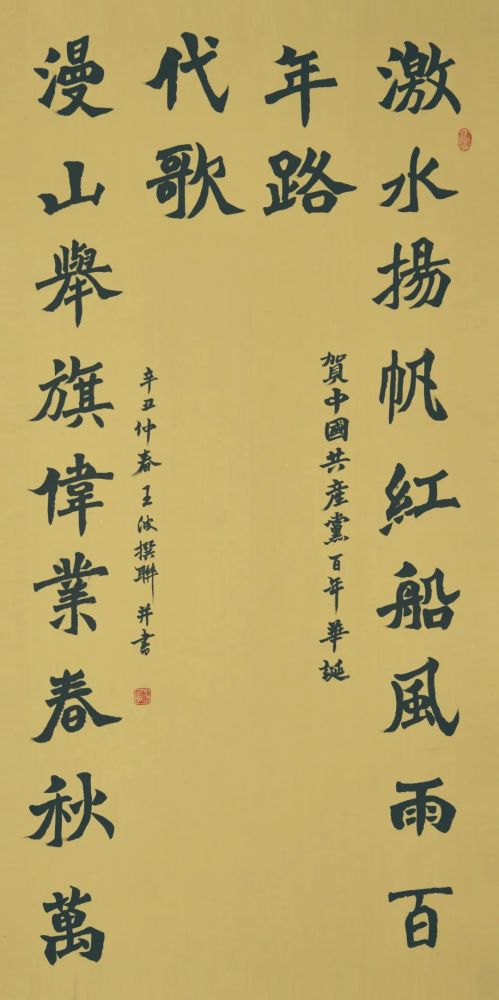 激水揚帆紅船風雨百
年路
賀中國共産黨百年華誕
漫山舉旗偉業春秋萬
代歌
辛丑仲春王波撰聯并書